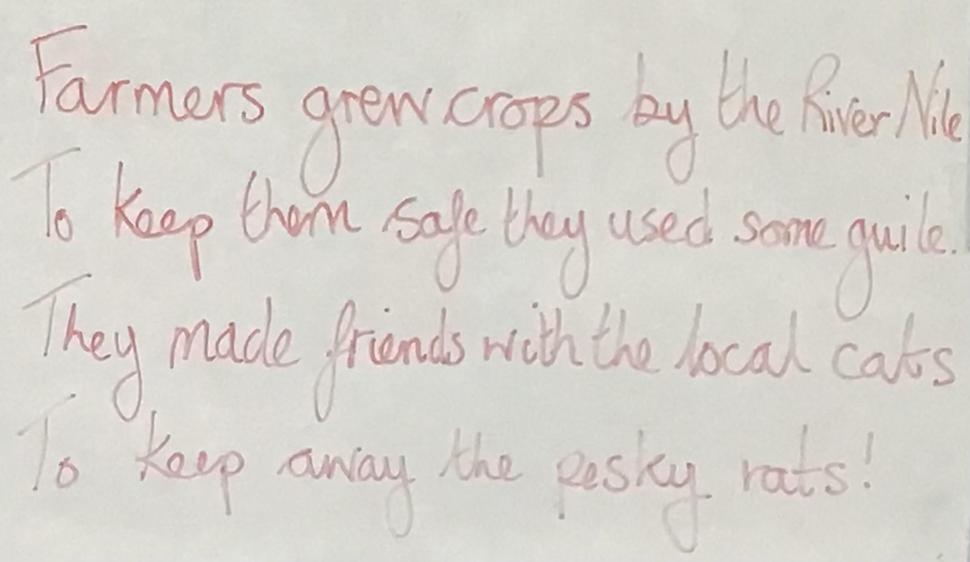 Farmers grew crops by the River Nile
To keep them safe they used some guile.
They made friends with the local cats
To keep away the pesky rats!